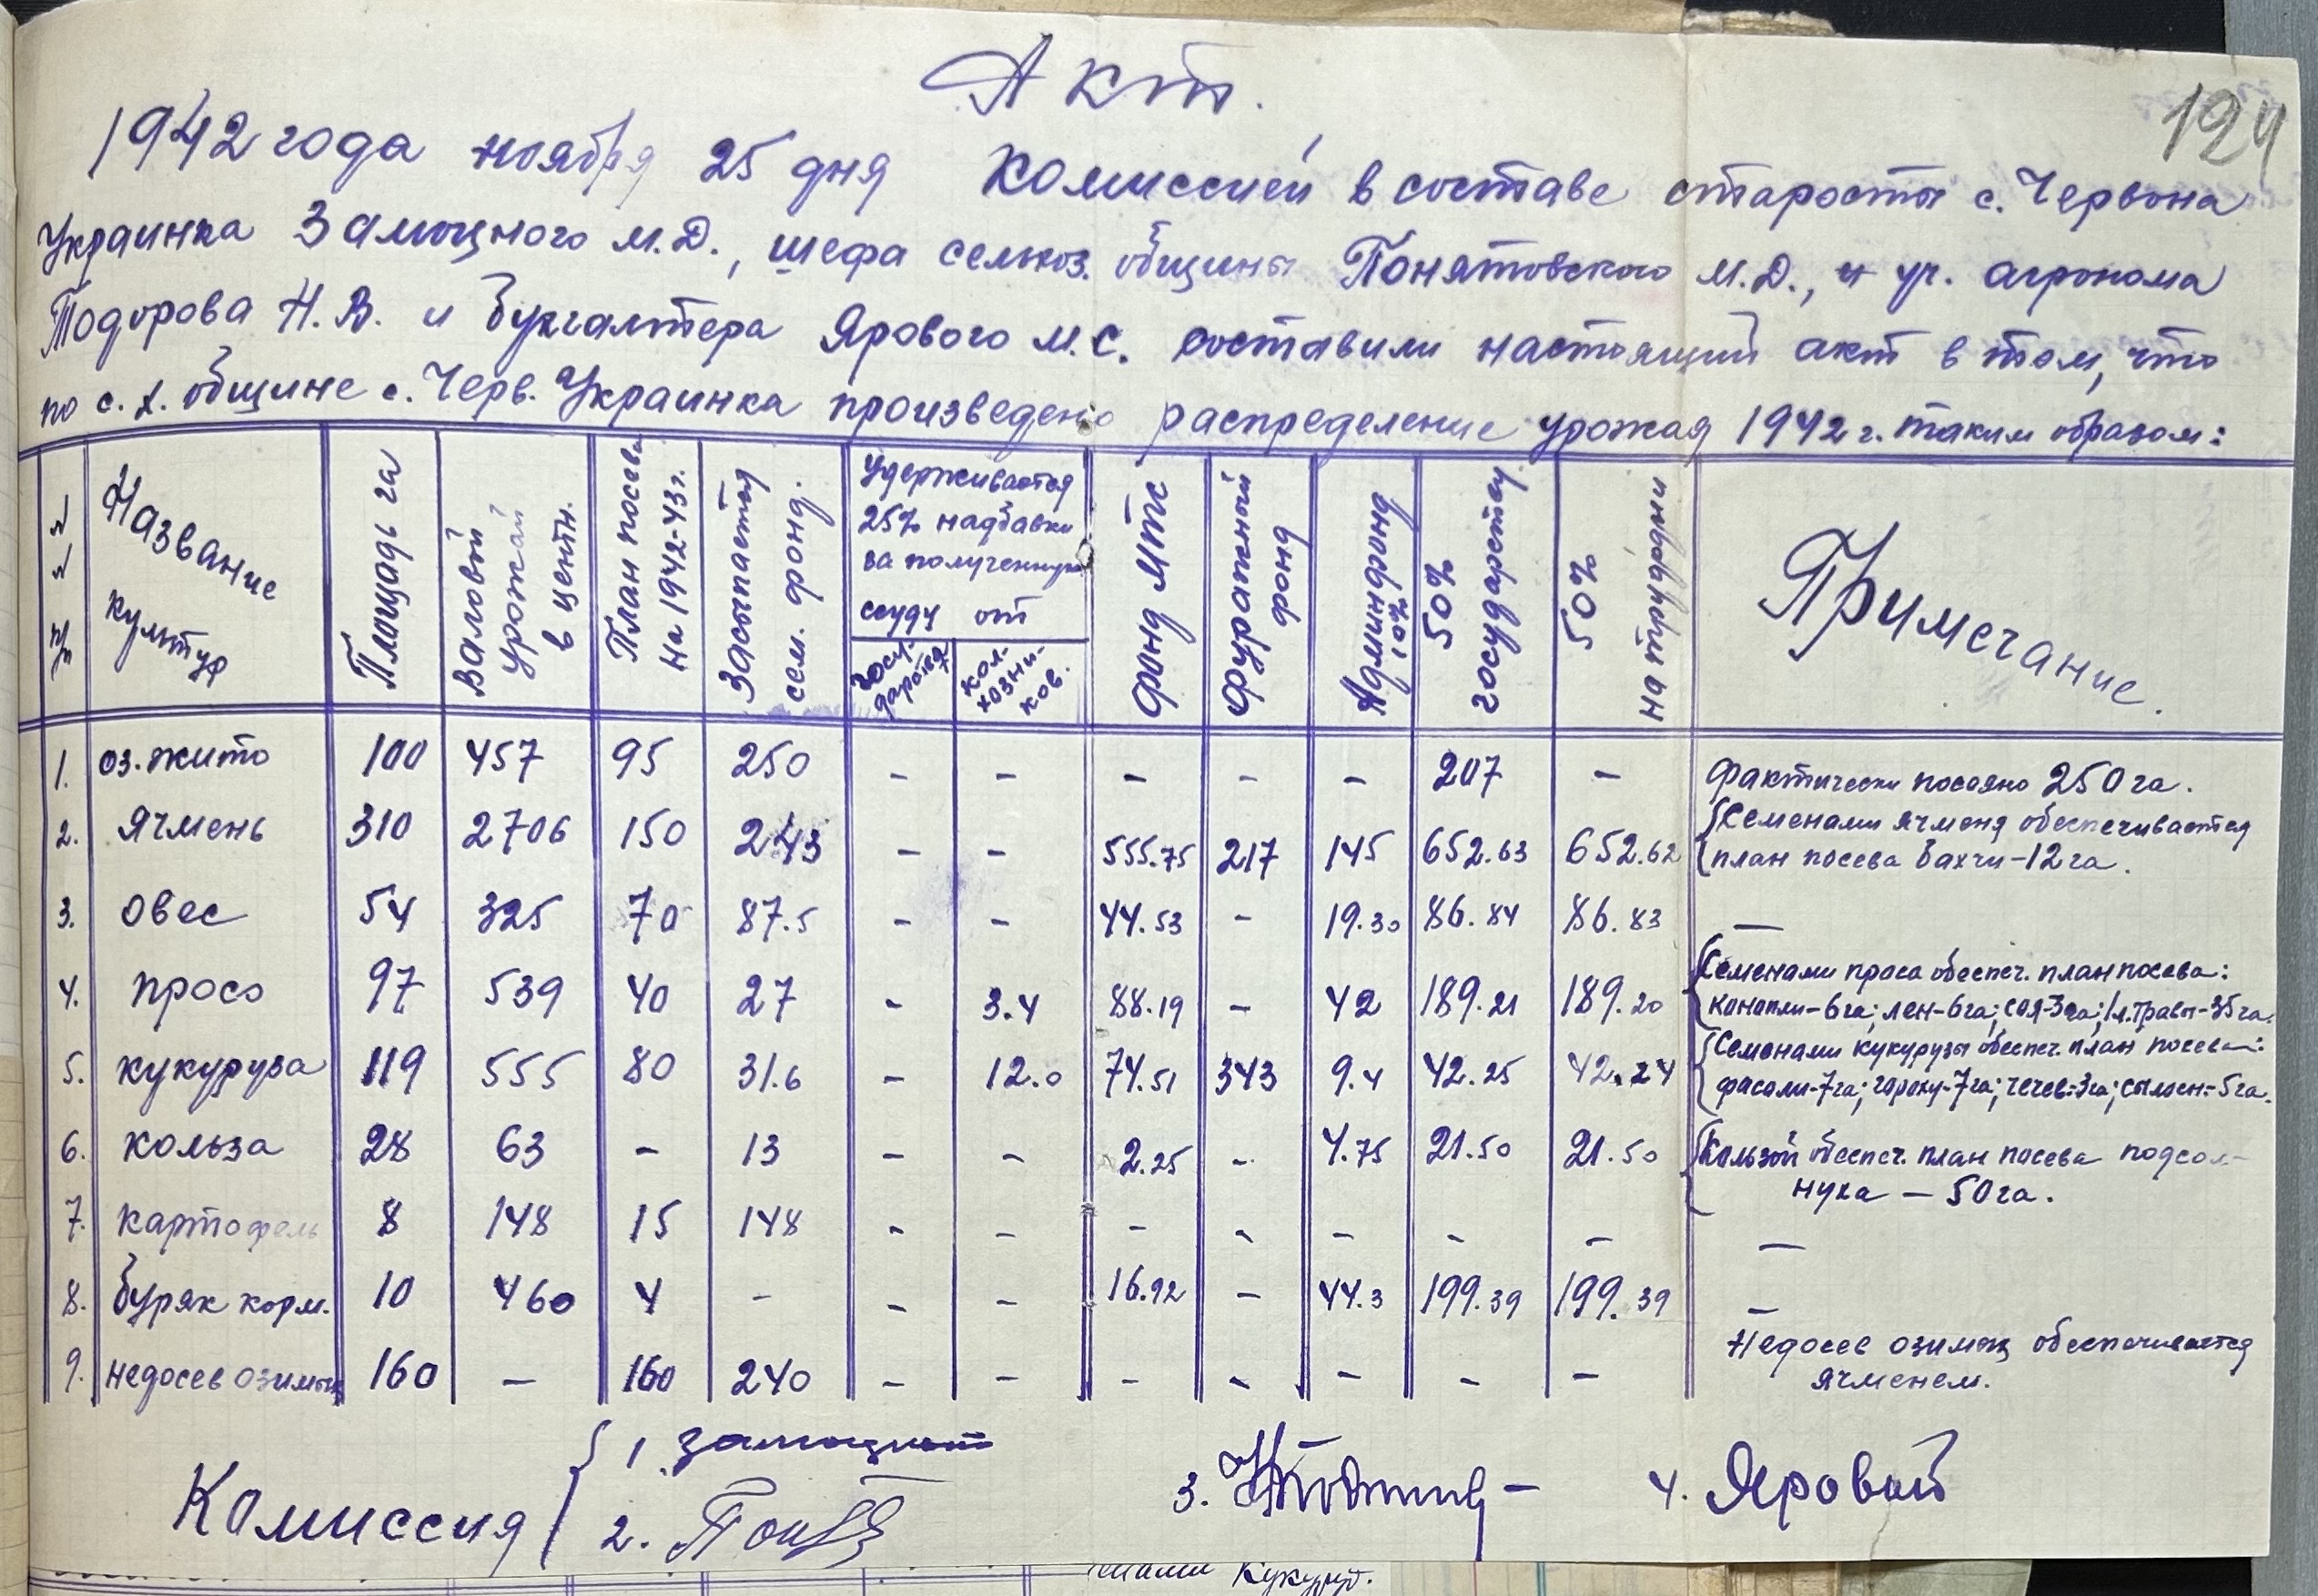 Акт.
124
1942 года ноября 25 дня Комиссией в составе старосты с. Червона
Украинка Замощного М.Д., шефа сельхоз. общины Понятовского М.Д., и уч. агронома
Тодорова Н.В. и бухгалтера Ярового М.С. составили настоящий акт в том, что
по с.х. общине с. Черв. Украинка произведено распределение урожая 1942 г. таким образом:
№ № п/п | Название культур | Площадь га | Валовый урожай в центн. | План посева на 1942-43 г. | Засыпается сем. фонд. | Удерживается 25% надбавки за полученную ссуду от государства | колхозников. | Фонд МТС | Фуражный фонд | Админфонд 10% | 50% государству | 50% на трудодни | Примечание.
1. | оз. жито | 100 | 457 | 95 | 250 | - | - | - | - | - | 207 | - | Фактически посеяно 250 га.
2. | ячмень | 310 | 2706 | 150 | 243 | - | - | 555.75 | 217 | 145 | 652.63 | 652.62 | Семенами ячменя обеспечивается
план посева бахчи-12 га.
3. | овес | 54 | 325 | 70 | 87.5 | - | - | 44.53 | - | 19.30 | 86.84 | 86.83 | —
4. | просо | 97 | 539 | 40 | 27 | - | 3.4 | 88.19 | - | 42 | 189.21 | 189.20 | Семенами проса обеспеч. план посева:
конопли-6 га; лен-6 га; соя-3 га; травы-35 га.
5. | кукуруза | 119 | 555 | 80 | 31.6 | - | 12.0 | 74.51 | 343 | 9.4 | 42.25 | 42.24 | Семенами кукурузы обеспеч. план посева:
фасоли-7 га; гороху-7 га; чечев.-3 га; -5 га.
6. | кольза | 28 | 63 | - | 13 | - | - | 2.25 | - | 4.75 | 21.50 | 21.50 | Кользой обеспеч. план посева подсол-
нуха — 50 га.
7. | картофель | 8 | 148 | 15 | 148 | - | - | - | - | - | - | - | —
8. | буряк корм. | 10 | 460 | 4 | - | - | - | 16.92 | - | 44.3 | 199.39 | 199.39 | —
9. | недосев озимых | 160 | - | 160 | 240 | - | - | - | - | - | - | - | Недосев озимых обеспечивается
ячменем.
Комиссия
1. Замощный
2.
3.
4. Яровый